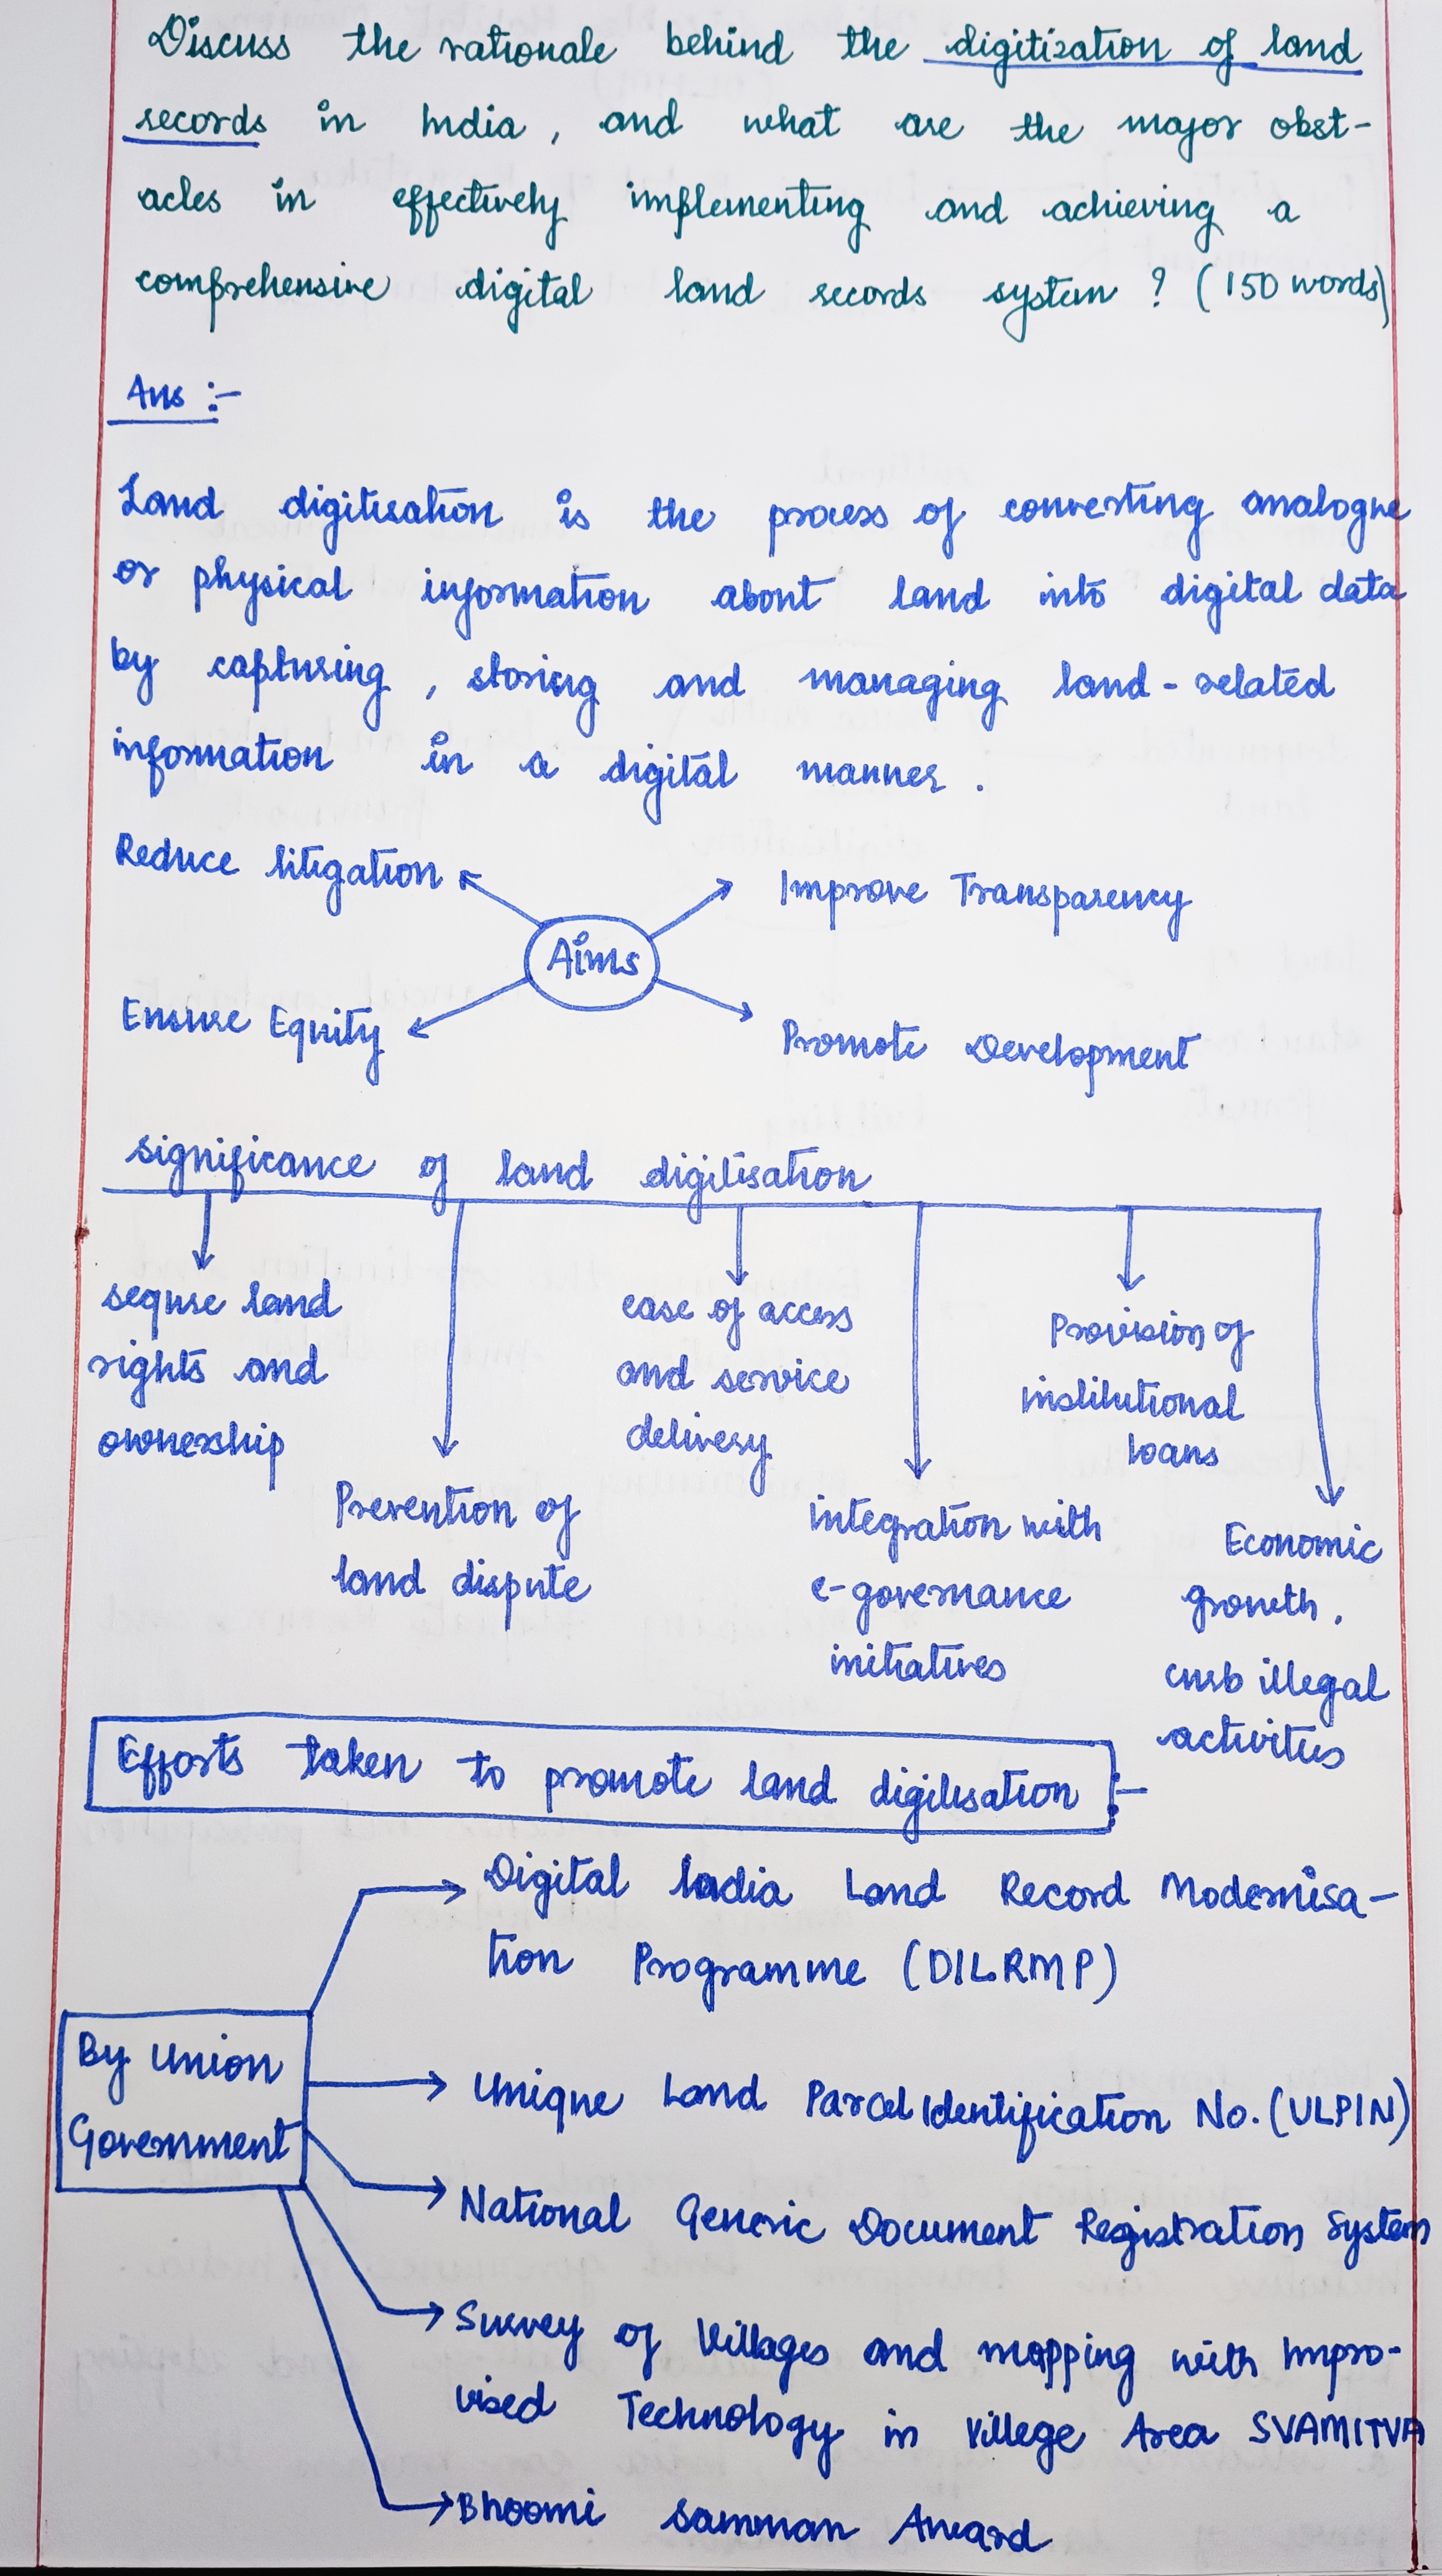 Discuss the rationale behind the digitization of land
records in India, and what are the major obst-
acles in effectively implementing and achieving a
comprehensive digital land records system ? (150 words)
Ans :-
Land digitisation is the process of converting analogue
or physical information about land into digital data
by capturing, storing and managing land-related
information in a digital manner.
Reduce litigation
Improve Transparency
Aims
Ensure Equity
Promote Development
significance of land digitisation
sequre land
rights and
ownership
Prevention of
land dispute
ease of access
and service
delivery
integration with
e-governance
initiatives
Provision of
institutional
loans
Economic
growth,
curb illegal
activities
Efforts taken to promote land digitisation :-
By Union
Government
Digital India Land Record Modernisa-
tion Programme (DILRMP)
Unique Land Parcel Identification No. (ULPIN)
National Generic Document Registration System
Survey of Villages and mapping with Impro-
vised Technology in Villege Area SVAMITVA
Bhoomi Samman Award